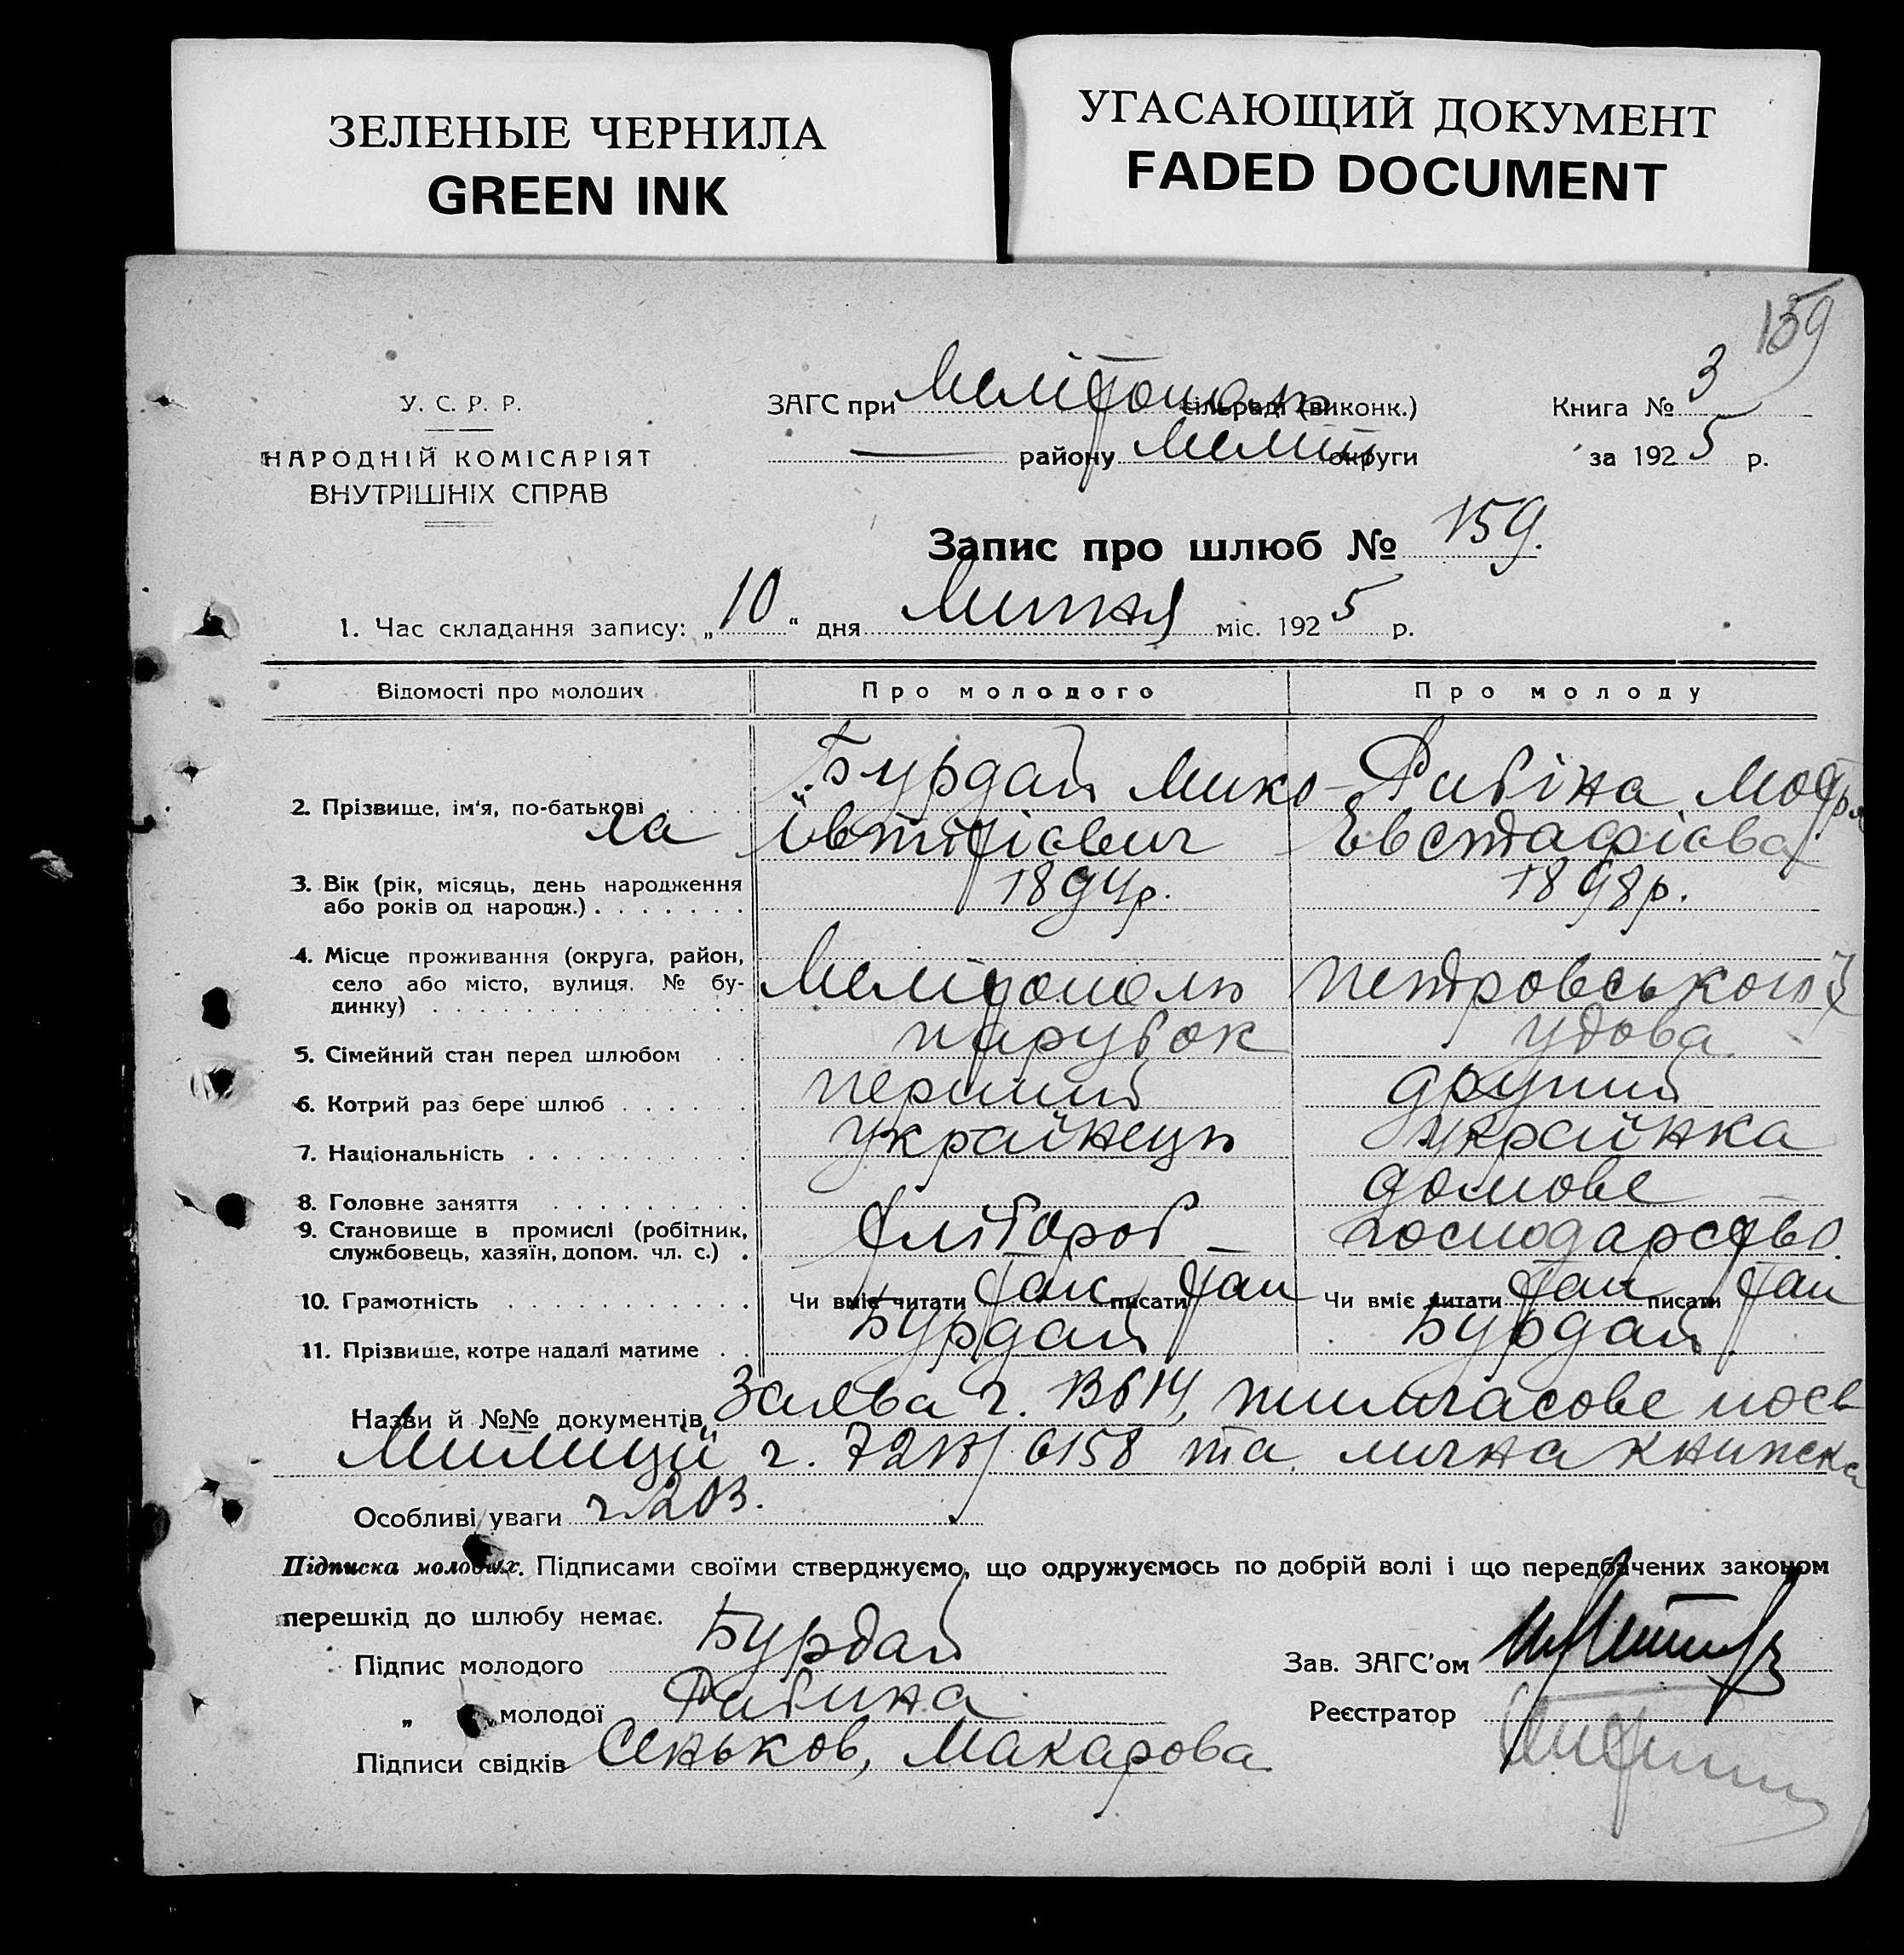 ЗЕЛЕНЫЕ ЧЕРНИЛА
GREEN INK
УГАСАЮЩИЙ ДОКУМЕНТ
FADED DOCUMENT
159
У. С. Р. Р.
НАРОДНІЙ КОМІСАРІЯТ
ВНУТРІШНІХ СПРАВ
ЗАГС при Мелітополь сільраді (виконк.)
— району Меліт округи
Книга № 3
за 1925 р.
Запис про шлюб № 159.
1. Час складання запису: „10“ дня Липня міс. 1925 р.
Відомості про молодих Про молодого Про молоду
2. Прізвище, ім'я, по-батькові Бурдай Мико- Рибіна
ла Евстафієва
3. Вік (рік, місяць, день народження 1894р. 1898р.
або років од народж.)
4. Місце проживання (округа, район,
село або місто, вулиця. № бу- Мелітополь Петровського
динку)
5. Сімейний стан перед шлюбом парубок удова
6. Котрий раз бере шлюб перший другий
7. Національність українець українка
8. Головне заняття домове
9. Становище в промислі (робітник, хлібороб – господарство.
службовець, хазяїн, допом. чл. с.)
10. Грамотність Чи вміє читати так писати так Чи вміє читати так писати так
11. Прізвище, котре надалі матиме Бурдай Бурдай
Назви й №№ документів Заява ч. тимчасове посв
Милиції ч. 6158 та лична книжка
Особливі уваги ч.
Підписка молодих. Підписами своїми стверджуємо, що одружуємось по добрій волі і що передбачених законом
перешкід до шлюбу немає.
Підпис молодого Бурдай
Зав. ЗАГС'ом
„ молодої Рибина
Реєстратор
Підписи свідків Сеньков, Макарова